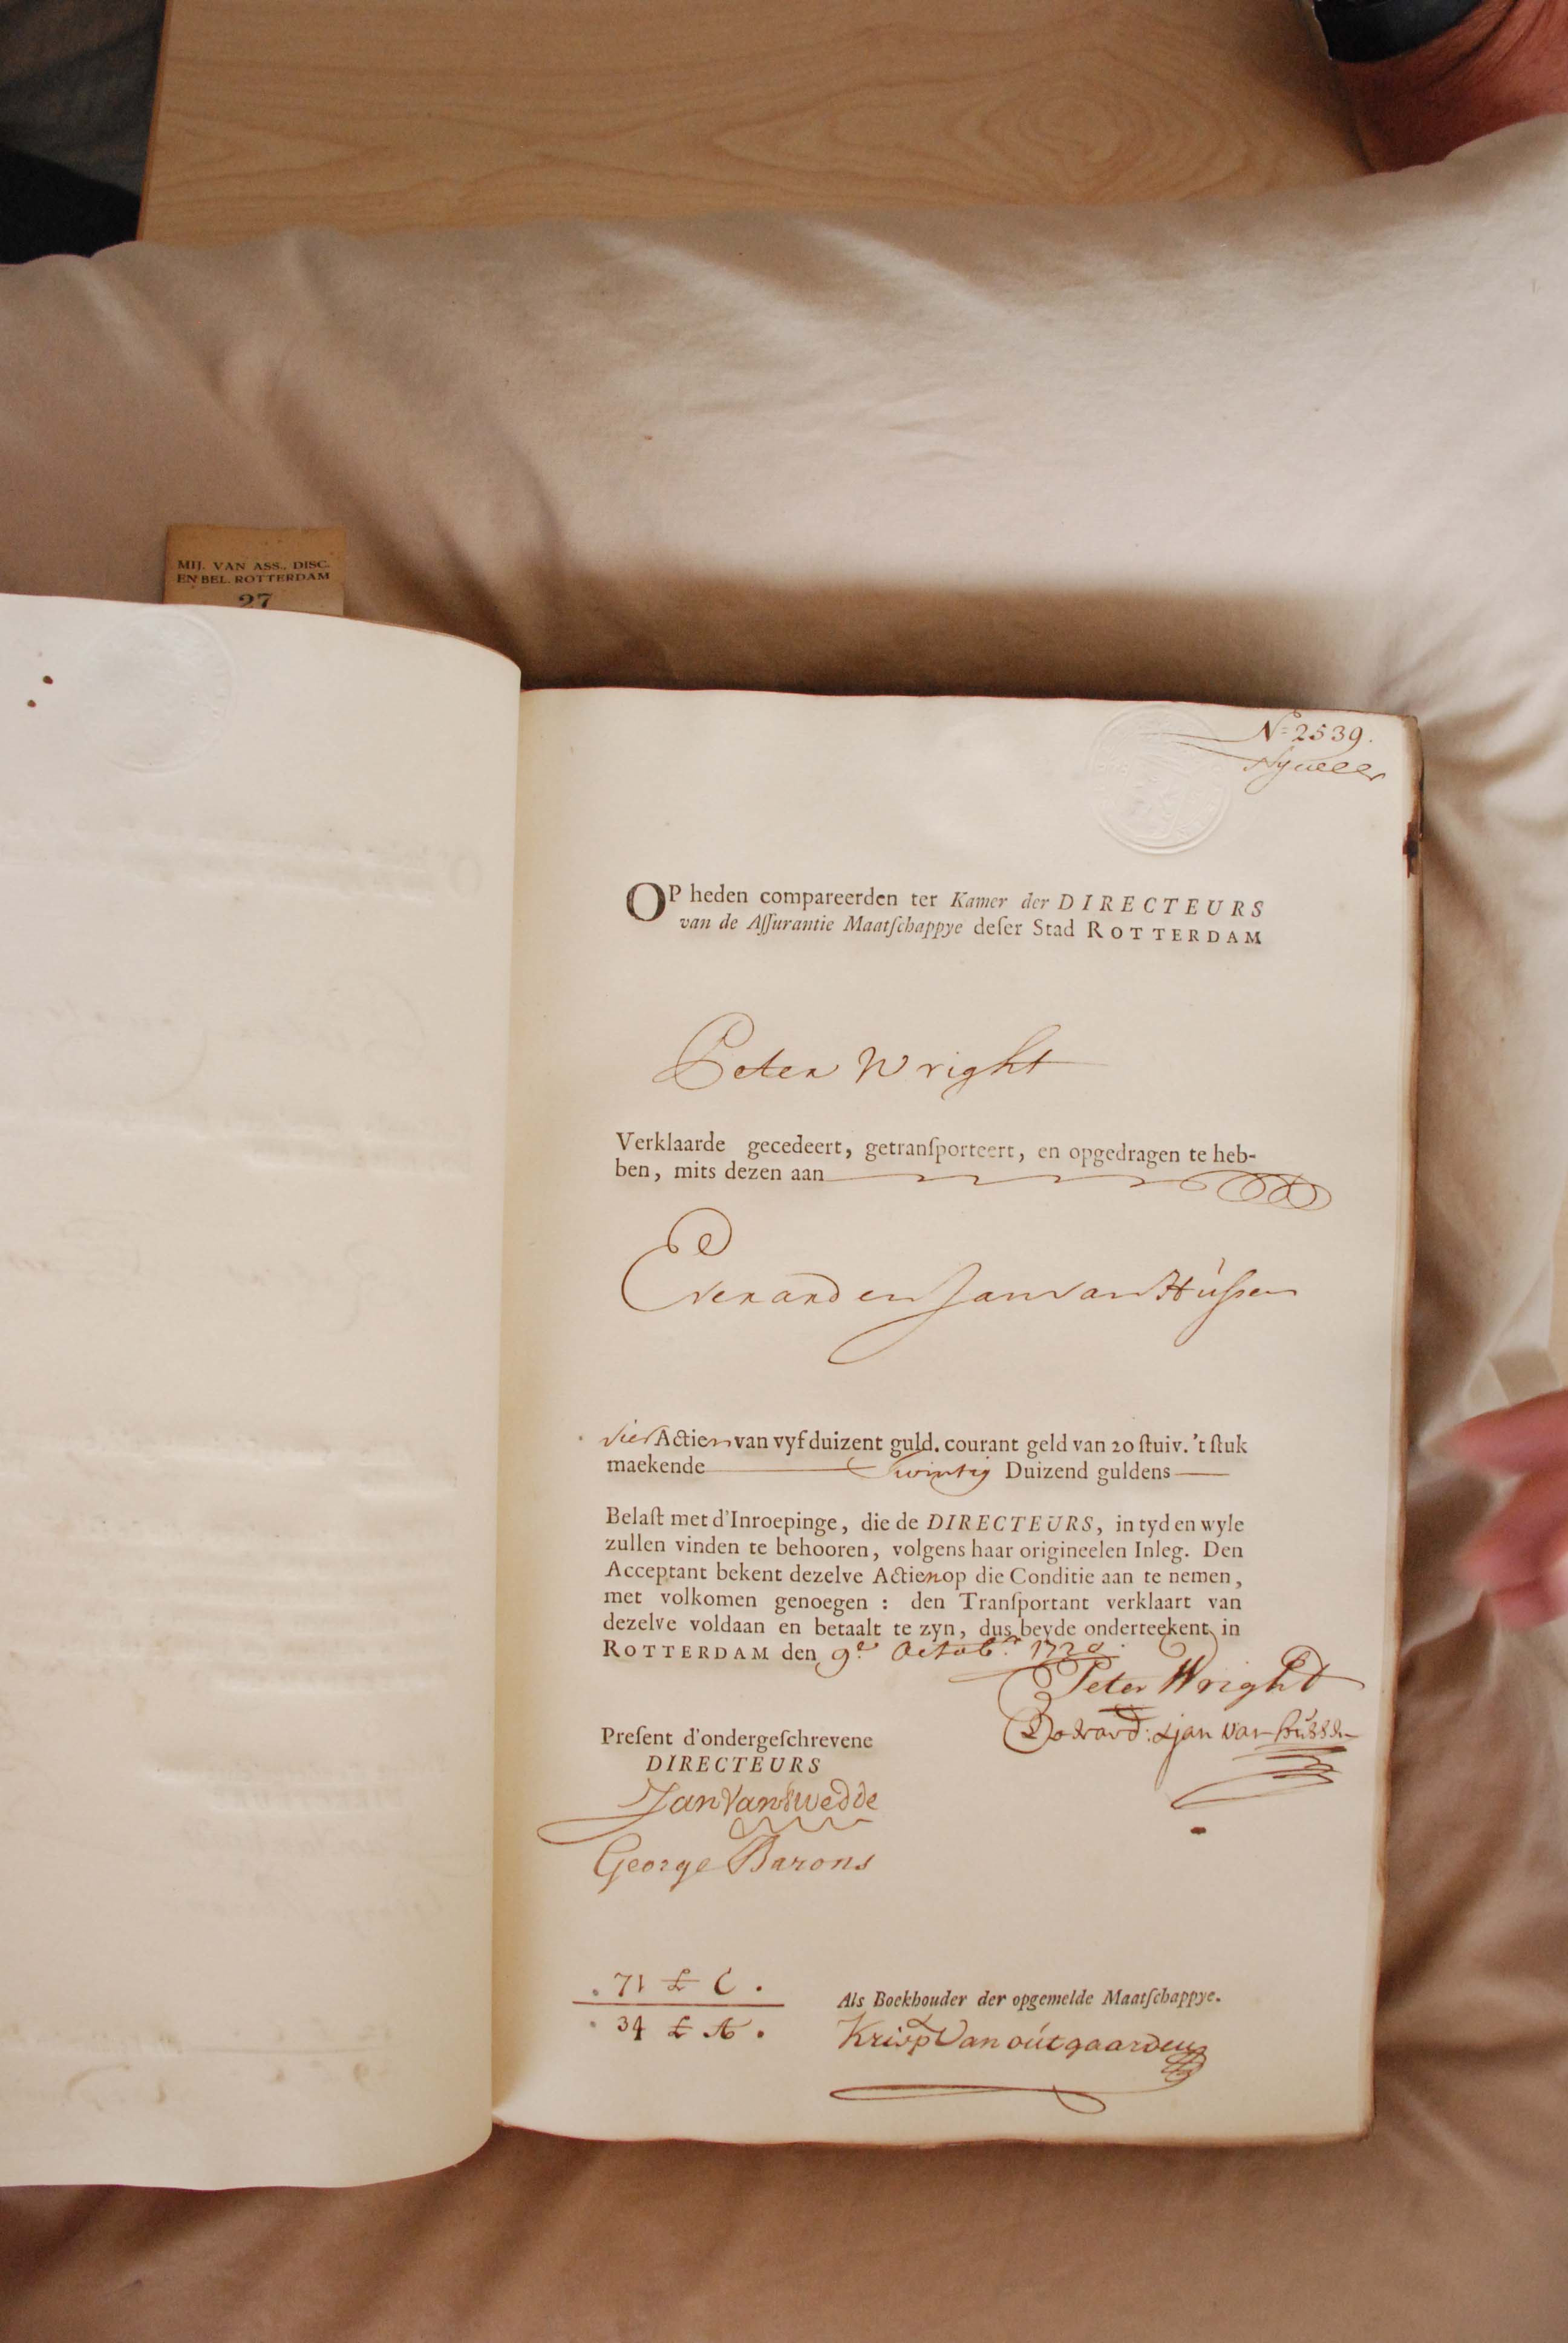 MIJ. VAN ASS., DISC.
EN BEL. ROTTERDAM
27
N=2539.
OP heden compareerden ter Kamer der DIRECTEURS
van de Aſſurantie Maatſchappye deſer Stad ROTTERDAM
Peter Wright
Verklaarde gecedeert, getranſporteert, en opgedragen te heb-
ben, mits dezen aan
Everard en Jan van Hússen
vier Actien van vyf duizent guld. courant geld van 20 ſtuiv. 't ſtuk
maekende Twintig Duizend guldens
Belaſt met d'Inroepinge, die de DIRECTEURS, in tyd en wyle
zullen vinden te behooren, volgens haar origineelen Inleg. Den
Acceptant bekent dezelve Actien op die Conditie aan te nemen,
met volkomen genoegen : den Tranſportant verklaart van
dezelve voldaan en betaalt te zyn, dus beyde onderteekent in
ROTTERDAM den 9e. Octobr. 1720.
Peter Wright
Jan van
Preſent d'ondergeſchrevene
DIRECTEURS
Jan Van Twedde
George Barons
. 71 £ C .
. 34 £ A .
Als Boekhouder der opgemelde Maatſchappye.
Krisp Van oútgaarden